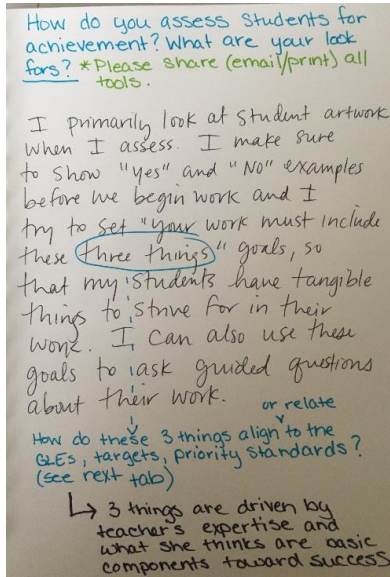 How do you assess students for
achievement? What are your look
fors? *Please share (email/print) all
tools.
I primarily look at student artwork
when I assess. I make sure
to show "yes" and "No" examples
before we begin work and I
try to set "your work must include
these three things" goals, so
that my students have tangible
things to strive for in their
work. I can also use these
goals to ask guided questions
about their work.
or relate
How do these 3 things align to the
GLEs, targets, priority standards?
(see next tab)
↳ 3 things are driven by
teacher's expertise and
what she thinks are basic
components toward success